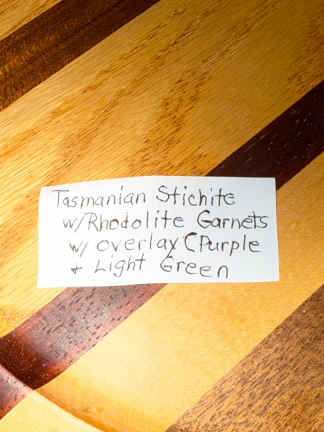 Tasmanian Stichite
w/Rhodolite Garnets
w/ overlay (Purple
+ Light Green